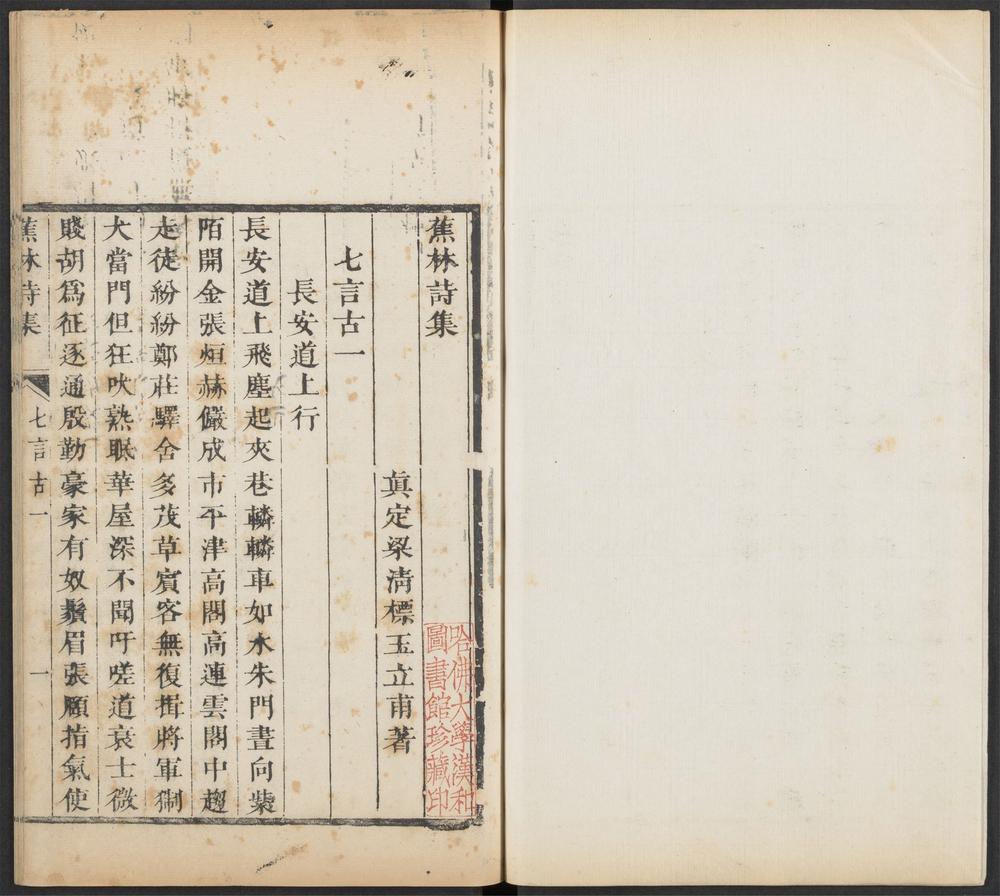 蕉林詩集
哈佛大學漢和
圖書館珍藏印
眞定梁清標玉立甫著
七言古一
長安道上行
長安道上飛塵起夾巷轔轔車如水朱門晝向紫
陌開金張烜赫儼成市平津高閣高連雲閣中趨
走徒紛紛鄭莊驛舍多茂草賓客無復揖將軍猘
犬當門但狂吠熟眠華屋深不聞吁嗟道衰士微
賤胡爲征逐通殷勤豪家有奴鬚眉張頤指氣使
蕉林詩集
七言古一
一